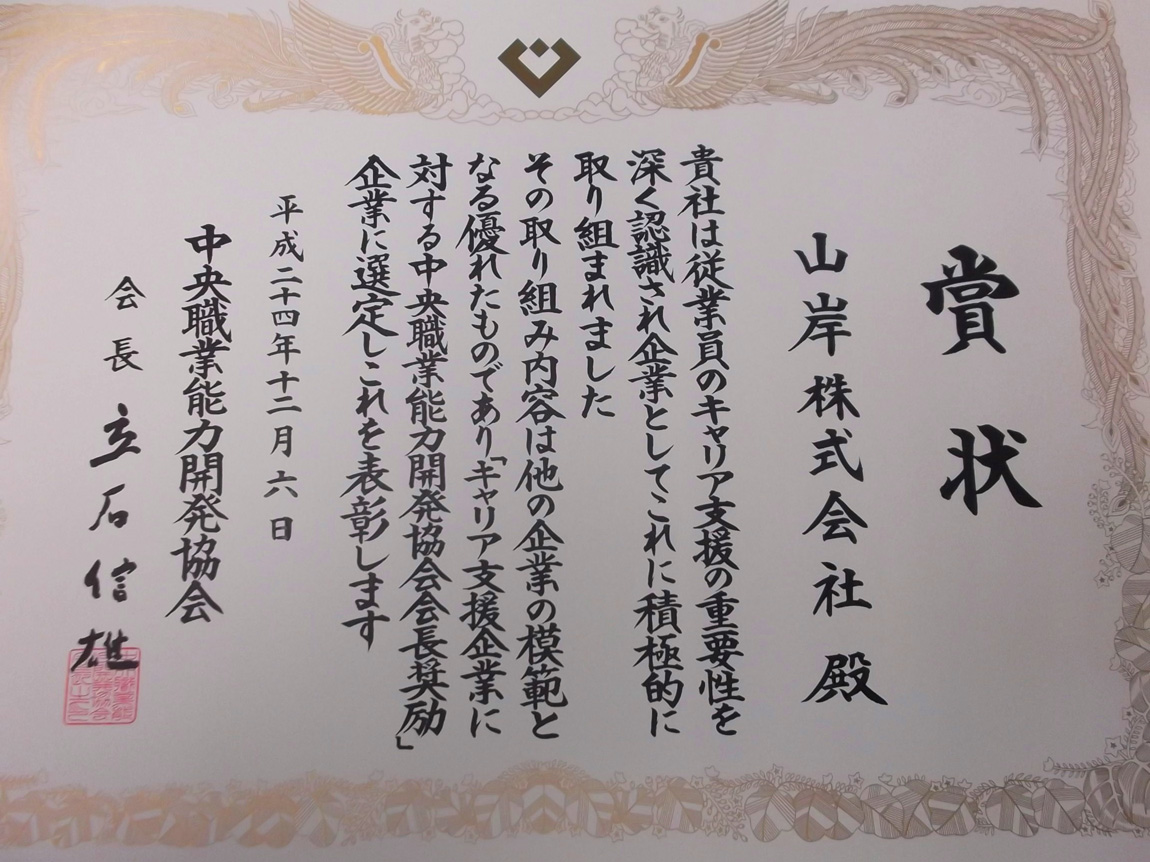 賞状
山岸株式会社殿
貴社は従業員のキャリア支援の重要性を
深く認識され企業としてこれに積極的に
取り組まれました
その取り組み内容は他の企業の模範と
なる優れたものであり「キャリア支援企業に
対する中央職業能力開発協会会長奨励」
企業に選定しこれを表彰します
平成二十四年十二月六日
中央職業能力開発協会
会長 立石信雄